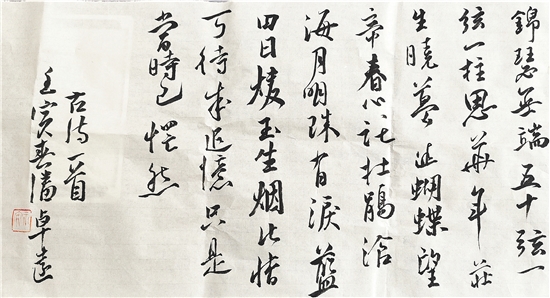 錦瑟無端五十弦一
弦一柱思華年莊
生曉夢迷蝴蝶望
帝春心託杜鵑滄
海月明珠有淚藍
田日煖玉生烟此情
可待成追憶只是
當時已惘然
古詩一首
壬寅春潘卓